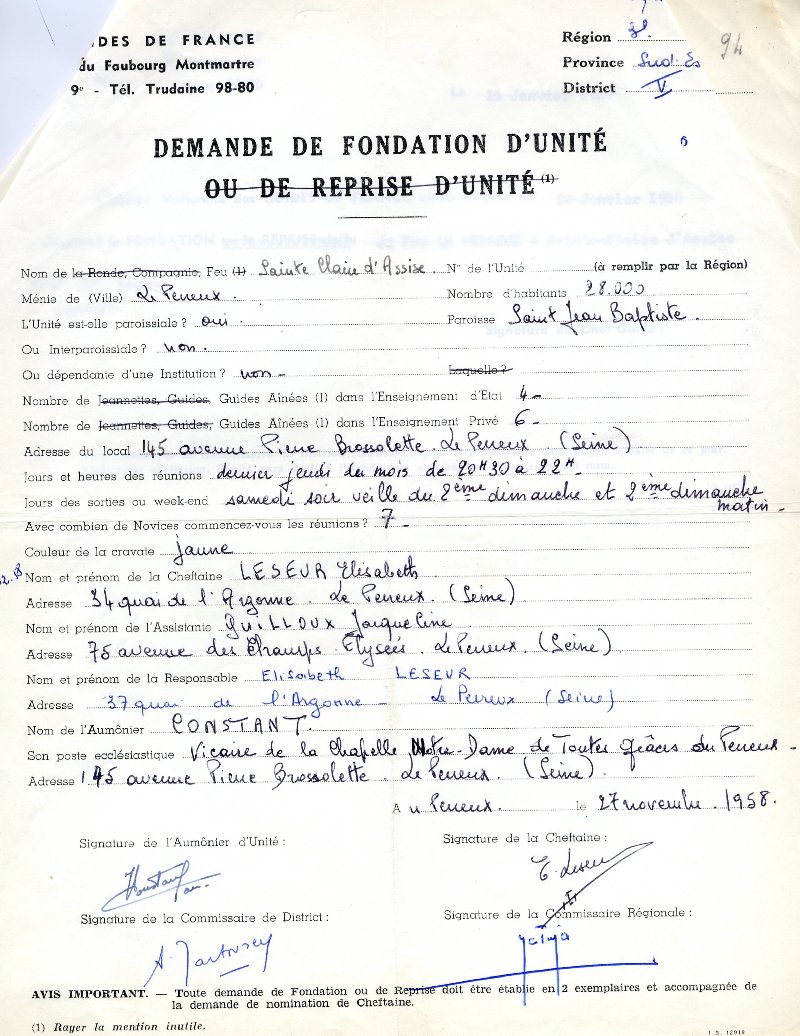 DES DE FRANCE
du Faubourg Montmartre
9e - Tél. Trudaine 98-80
Région
94
Province Sud-Es
District V
DEMANDE DE FONDATION D'UNITÉ
OU DE REPRISE D'UNITÉ (1)
Nom de la Ronde, Compagnie, Feu (1) Sainte Claire d'Assise. N° de l'Unité (à remplir par la Région)
Ménie de (Ville) Le Perreux. Nombre d'habitants 28.000
L'Unité est-elle paroissiale ? oui. Paroisse Saint Jean Baptiste.
Ou Interparoissiale ? non.
Ou dépendante d'une Institution ? non - Laquelle ?
Nombre de Jeannettes, Guides, Guides Aînées (1) dans l'Enseignement d'Etat 4 -
Nombre de Jeannettes, Guides, Guides Aînées (1) dans l'Enseignement Privé 6 -
Adresse du local 145 avenue Pierre Brossolette. Le Perreux (Seine)
Jours et heures des réunions dernier jeudi du mois de 20H30 à 22H
Jours des sorties ou week-end samedi soir veille du 2ème dimanche et 2ème dimanche
matin -
Avec combien de Novices commencez-vous les réunions ? 7 -
Couleur de la cravate jaune
Nom et prénom de la Cheftaine LESEUR Elisabeth
Adresse 34 quai de l'Argonne. Le Perreux. (Seine)
Nom et prénom de l'Assistante GUILLOUX Jacqueline
Adresse 75 avenue des Champs Elysées. Le Perreux. (Seine)
Nom et prénom de la Responsable Elisabeth LESEUR
Adresse 37 quai de l'Argonne - Le Perreux (Seine)
Nom de l'Aumônier CONSTANT.
Son poste ecclésiastique Vicaire de la Chapelle Notre-Dame de Toutes Grâces du Perreux -
Adresse 145 avenue Pierre Brossolette. Le Perreux. (Seine).
A u Perreux. le 27 novembre. 1958.
Signature de l'Aumônier d'Unité : Signature de la Cheftaine :
E. Leseur
Signature de la Commissaire de District : Signature de la Commissaire Régionale :
AVIS IMPORTANT. — Toute demande de Fondation ou de Reprise doit être établie en 2 exemplaires et accompagnée de
la demande de nomination de Cheftaine.
(1) Rayer la mention inutile.